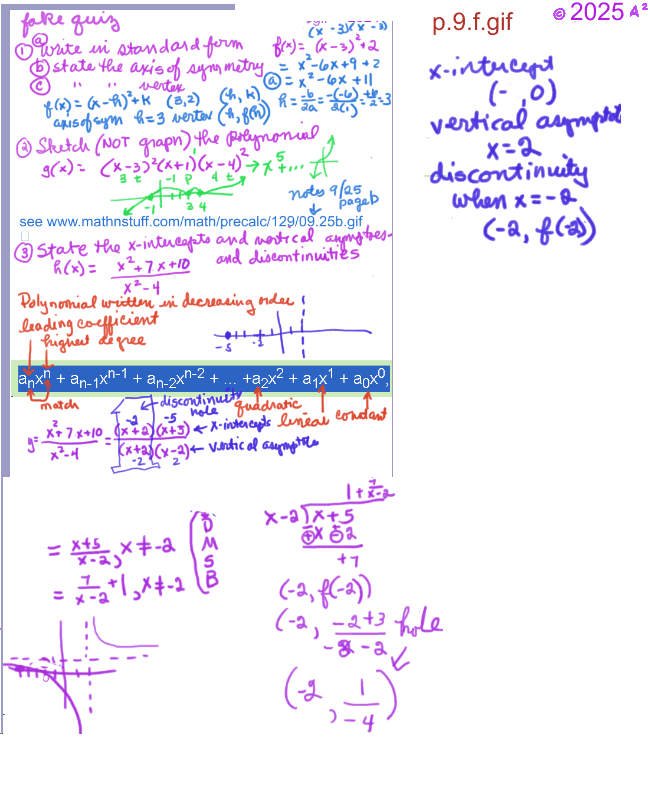 p.9.f.gif
© 2025 A²
fake quiz
(x-3)(x-3)
① ⓐ Write in standard form f(x) = (x-3)²+2
ⓑ state the axis of symmetry = x²-6x+9+2
ⓒ " " vertex ⓐ = x²-6x+11
f(x) = (x-h)²+k (3,2) (h, k) h = -b/2a = -(-6)/2(1) = +6/2 = 3
axis of sym h=3 vertex (h, f(h))
② Sketch (NOT graph) the polynomial
g(x) = (x-3)²(x+1)(x-4)² → x⁵+...
3 t -1 p 4 t
-1 3 4
notes 9/25
page b
see www.mathnstuff.com/math/precalc/129/09.25b.gif
③ State the x-intercepts and vertical asymptotes
and discontinuities
h(x) = x²+7x+10 / x²-4
Polynomial written in decreasing order
leading coefficient
highest degree
-5 -2
aₙxⁿ + aₙ₋₁xⁿ⁻¹ + aₙ₋₂xⁿ⁻² + ... +a₂x² + a₁x¹ + a₀x⁰,
match
quadratic
linear
constant
discontinuity
hole
-2 -5
y = x²+7x+10 / x²-4 = (x+2)(x+5) / (x+2)(x-2)
← x-intercepts
← vertical asymptote
-2 2
= x+5 / x-2, x ≠ -2
= 7 / x-2 + 1, x ≠ -2
D
M
S
B
1 + 7/x-2
x-2 ) x+5
⊕x ⊖2
+7
(-2, f(-2))
(-2, -2+3 / -2-2) hole
(-2, 1 / -4)
x-intercept
(- ,0)
vertical asymptote
x=2
discontinuity
when x=-2
(-2, f(-2))